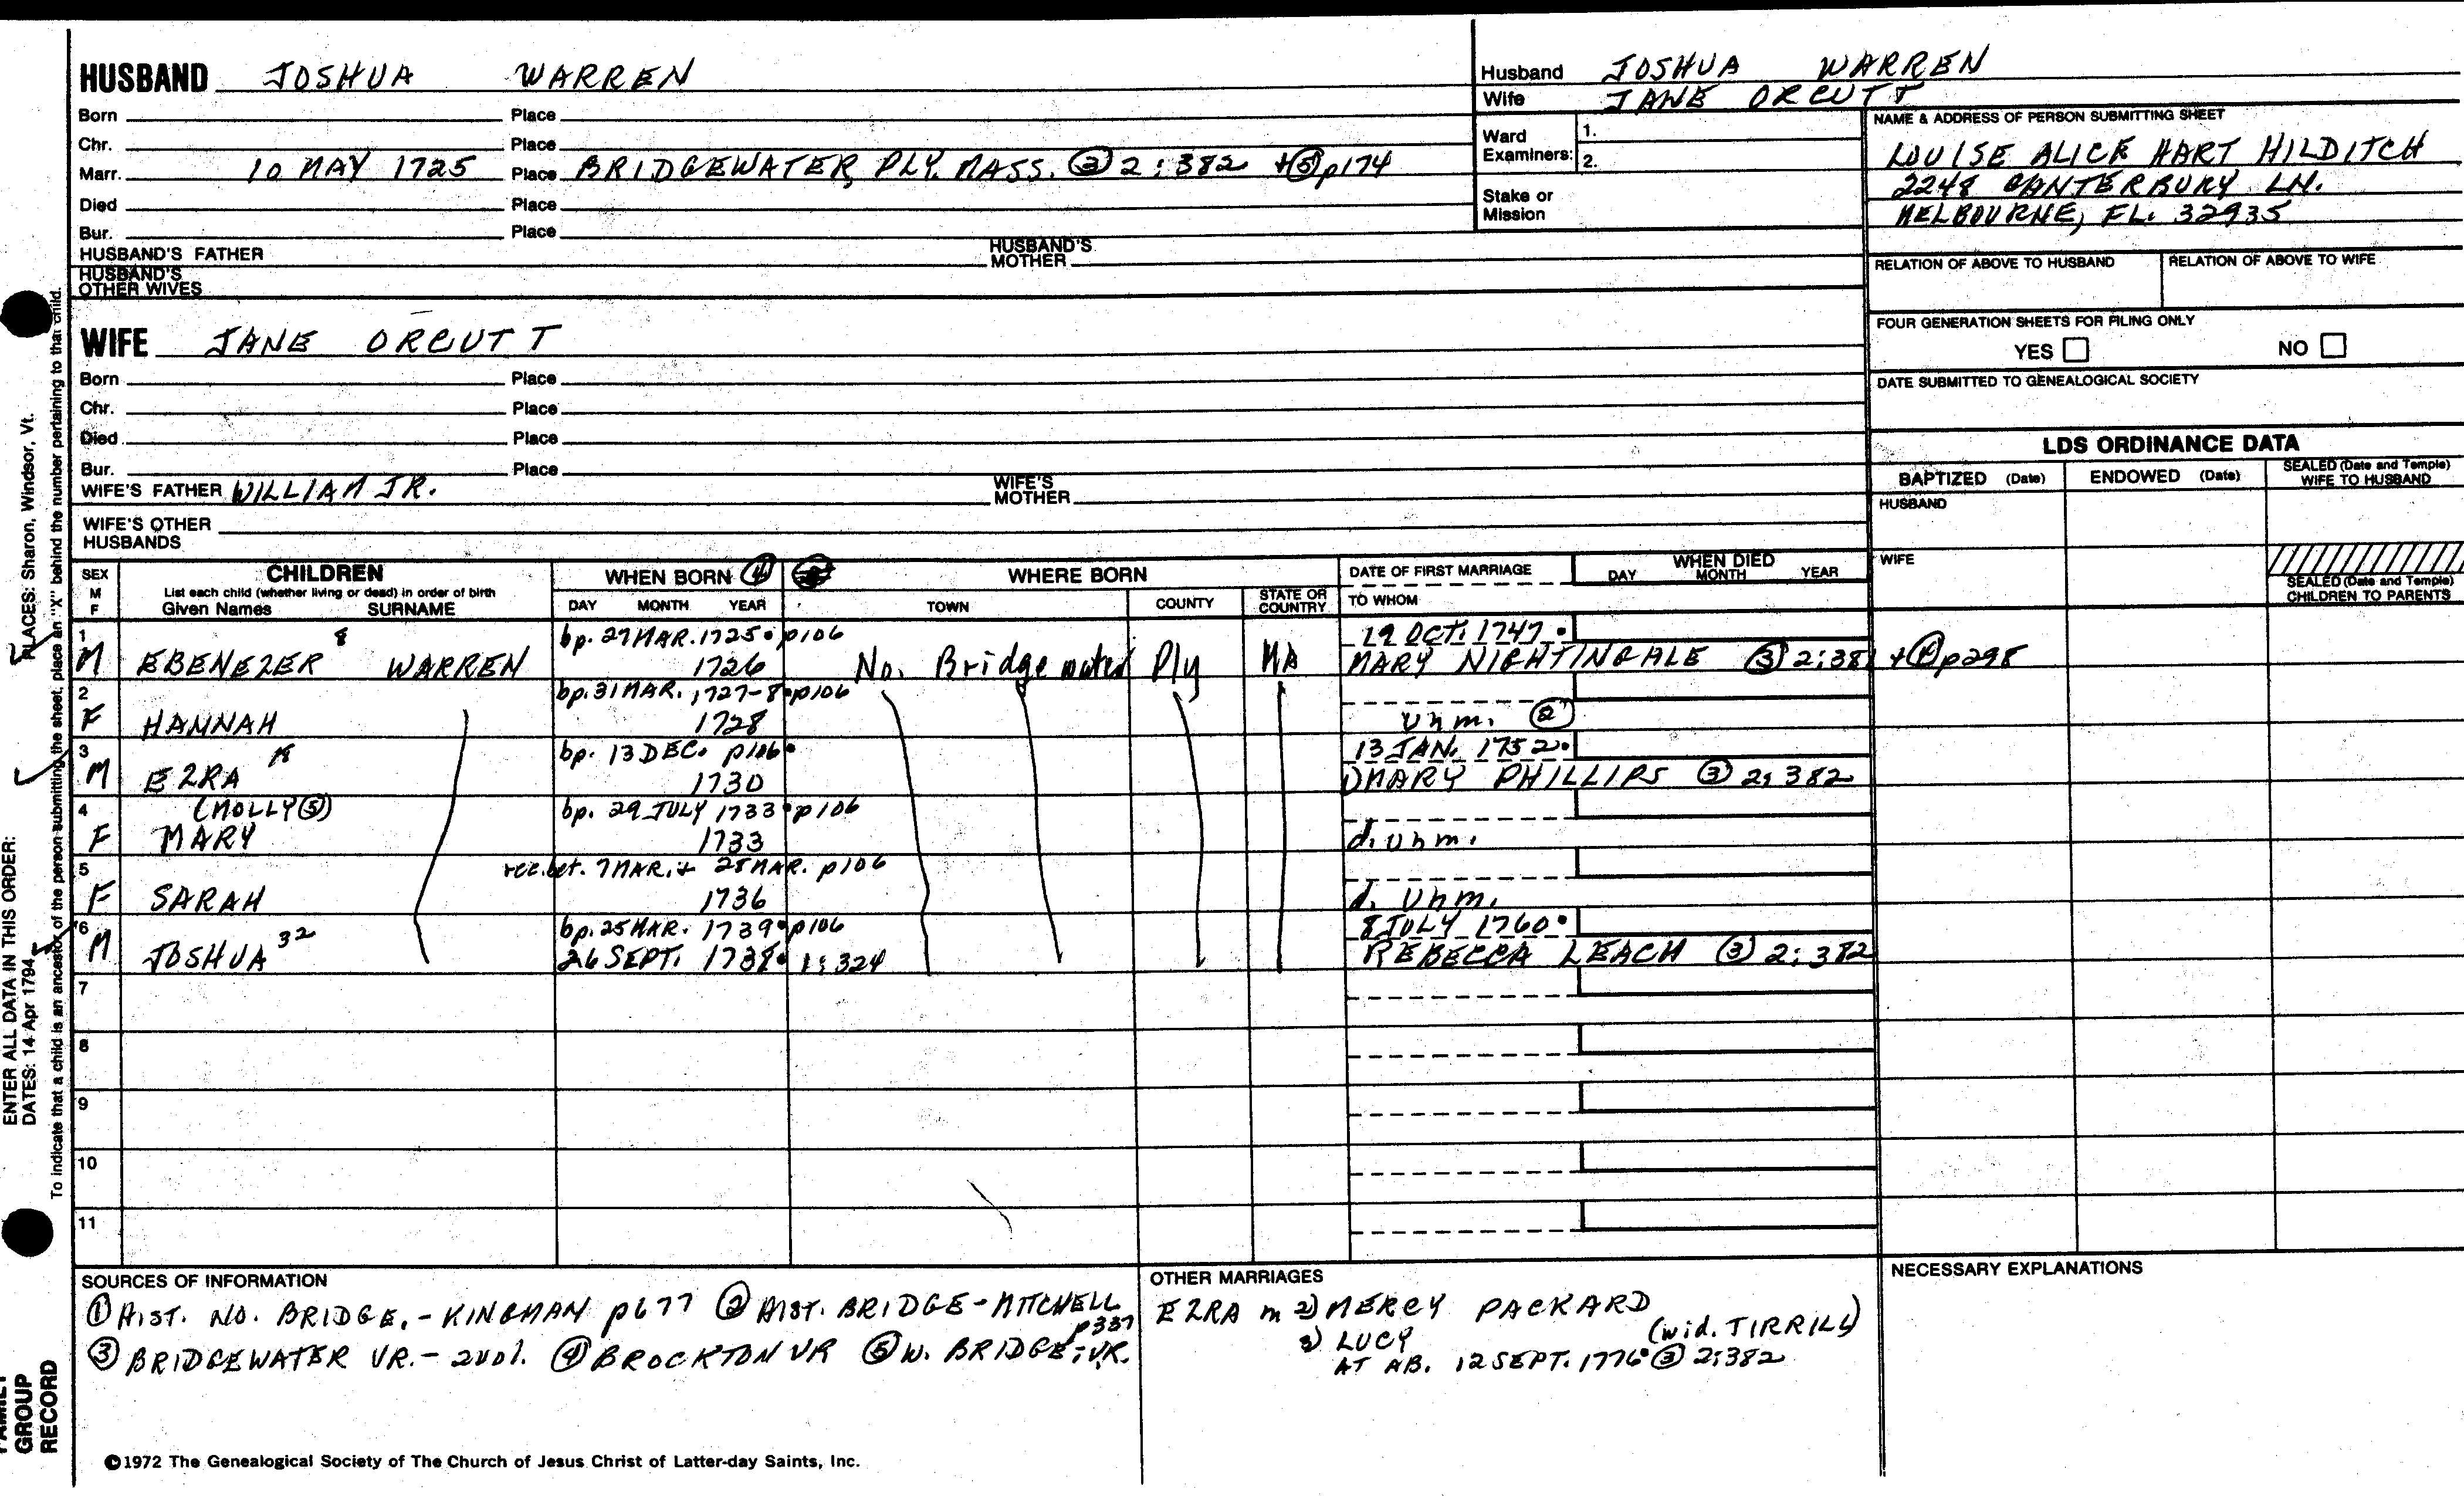 HUSBAND JOSHUA WARREN
Born Place
Chr. Place
Marr. 10 MAY 1725 Place BRIDGEWATER, PLY. MASS. ③ 2:382 + ⑤ p174
Died Place
Bur. Place
HUSBAND'S FATHER HUSBAND'S MOTHER
HUSBAND'S OTHER WIVES
Husband JOSHUA WARREN
Wife JANE ORCUTT
Ward Examiners: 1.
2.
Stake or Mission
NAME & ADDRESS OF PERSON SUBMITTING SHEET
LOUISE ALICE HART HILDITCH
2248 CANTERBURY LN.
MELBOURNE, FL. 32935
RELATION OF ABOVE TO HUSBAND RELATION OF ABOVE TO WIFE
FOUR GENERATION SHEETS FOR FILING ONLY
YES NO
DATE SUBMITTED TO GENEALOGICAL SOCIETY
WIFE JANE ORCUTT
Born Place
Chr. Place
Died Place
Bur. Place
WIFE'S FATHER WILLIAM JR. WIFE'S MOTHER
WIFE'S OTHER HUSBANDS
LDS ORDINANCE DATA
BAPTIZED (Date) ENDOWED (Date) SEALED (Date and Temple) WIFE TO HUSBAND
HUSBAND
WIFE
SEALED (Date and Temple) CHILDREN TO PARENTS
SEX M F
CHILDREN
List each child (whether living or dead) in order of birth
Given Names SURNAME
WHEN BORN ④
DAY MONTH YEAR
WHERE BORN
TOWN COUNTY STATE OR COUNTRY
DATE OF FIRST MARRIAGE
TO WHOM
WHEN DIED
DAY MONTH YEAR
1 8 bp. 27 MAR. 1725 p106 19 OCT. 1747
M EBENEZER WARREN 1726 No. Bridgewater Ply MA MARY NIGHTINGALE ③ 2:381 + p298
2 bp. 31 MAR. 1727-8 p106
F HANNAH 1728 unm. ②
3 bp. 13 DEC. p106 13 JAN. 1752
M EZRA 1730 MARY PHILLIPS ③ 2:382
4 (MOLLY ⑤) bp. 29 JULY 1733 p106
F MARY 1733 d. unm.
5 rec. bet. 7 MAR. + 25 MAR. p106
F SARAH 1736 d. unm.
6 bp. 25 MAR. 1739 p106 8 JULY 1760
M JOSHUA 32 26 SEPT. 1738 1:324 REBECCA LEACH ③ 2:382
7
8
9
10
11
SOURCES OF INFORMATION
① HIST. NO. BRIDGE. - KINGMAN p677 ② HIST. BRIDGE - MITCHELL p337
③ BRIDGEWATER VR. - 2 vol. ④ BROCKTON VR ⑤ W. BRIDGE. VR.
OTHER MARRIAGES
EZRA m 2) MERCY PACKARD
3) LUCY (wid. TIRRILL)
AT AB. 12 SEPT. 1776 ③ 2:382
NECESSARY EXPLANATIONS
©1972 The Genealogical Society of The Church of Jesus Christ of Latter-day Saints, Inc.
ENTER ALL DATA IN THIS ORDER:
DATES: 14 Apr 1794 PLACES: Sharon, Windsor, Vt.
To indicate that a child is an ancestor of the person submitting the sheet, place an "X" behind the number pertaining to that child.
FAMILY GROUP RECORD